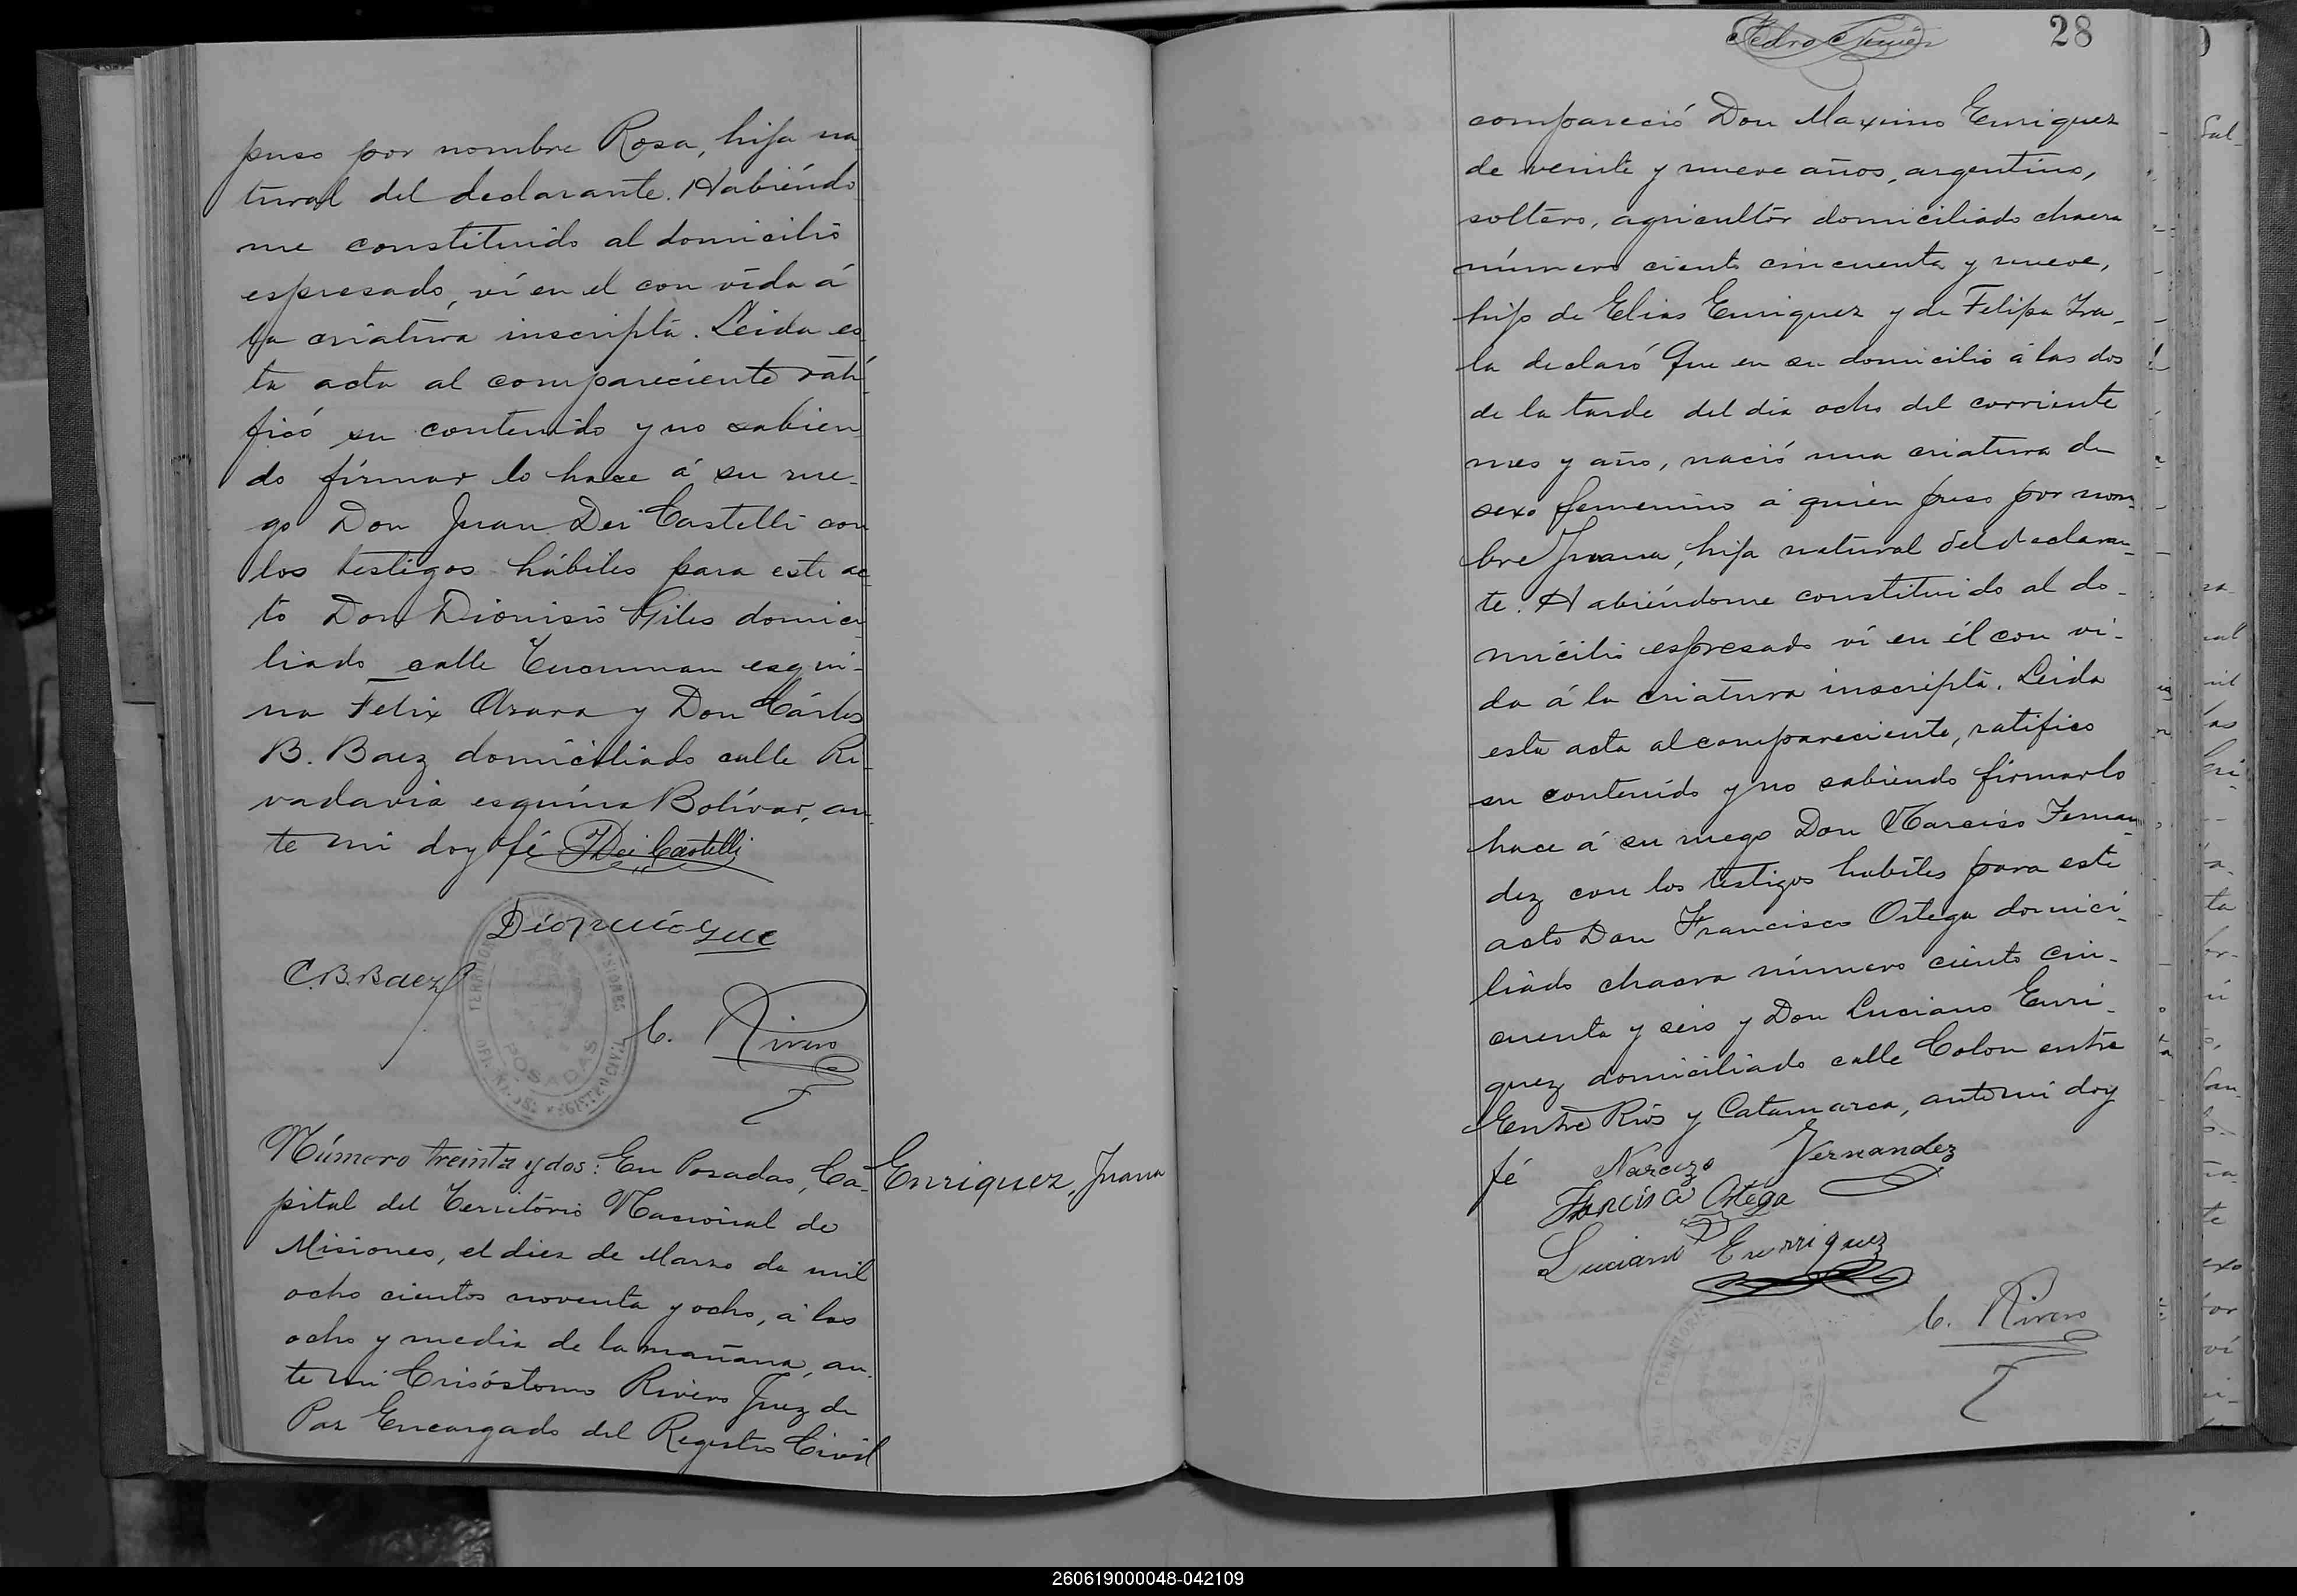 puso por nombre Rosa, hija na
tural del declarante. Habiéndo
me constituido al domicilio
espresado, ví en el con vida á
la criatura inscripta. Leida es
ta acta al compareciente rati
ficó su contenido y no sabien
do firmar lo hace á su rue-
go Don Juan Dei Castelli con
los testigos hábiles para este ac
to Don Dionisio Giles domici
liado calle Tucuman esqui-
na Felix Azara y Don Cárlos
B. Baez domiciliado calle Ri-
vadavia esquina Bolívar, an-
te mi doy fé JDei Castelli
C.B.Baez
TERRITORIO
POSADAS
C. Rivero
Número treinta y dos: En Posadas, Ca-
Enriquez, Juana
pital del Territorio Nacional de
Misiones, el diez de Marzo de mil
ocho cientos noventa y ocho, á las
ocho y media de la mañana, an-
te mi Crisóstomo Rivero Juez de
Paz Encargado del Registro Civil
Pedro
28
compareció Don Maximo Enriquez
de veinte y nueve años, argentino,
soltero, agricultor domiciliado chacra
número ciento cincuenta y nueve,
hijo de Elias Enriquez y de Felipa Ira-
la declaró Que en su domicilio á las dos
de la tarde del dia ocho del corriente
mes y año, nació una criatura de
sexo femenino á quien puso por nom-
bre Juana, hija natural del declaran-
te. Habiéndome constituido al do-
micilio espresado ví en él con vi-
da á la criatura inscripta. Leida
esta acta al compareciente, ratifico
su contenido y no sabiendo firmarlo
hace á su ruego Don Narciso Fernan-
dez con los testigos habiles para este
acto Don Francisco Ortega domici-
liado chacra número ciento cin-
cuenta y seis y Don Luciano Enri-
quez domiciliado calle Colon entre
Entre Rios y Catamarca, ante mi doy
fé Narcizo Fernandez
Francisco Ortega
Luciano Enrriquez
C. Rivero
260619000048-042109